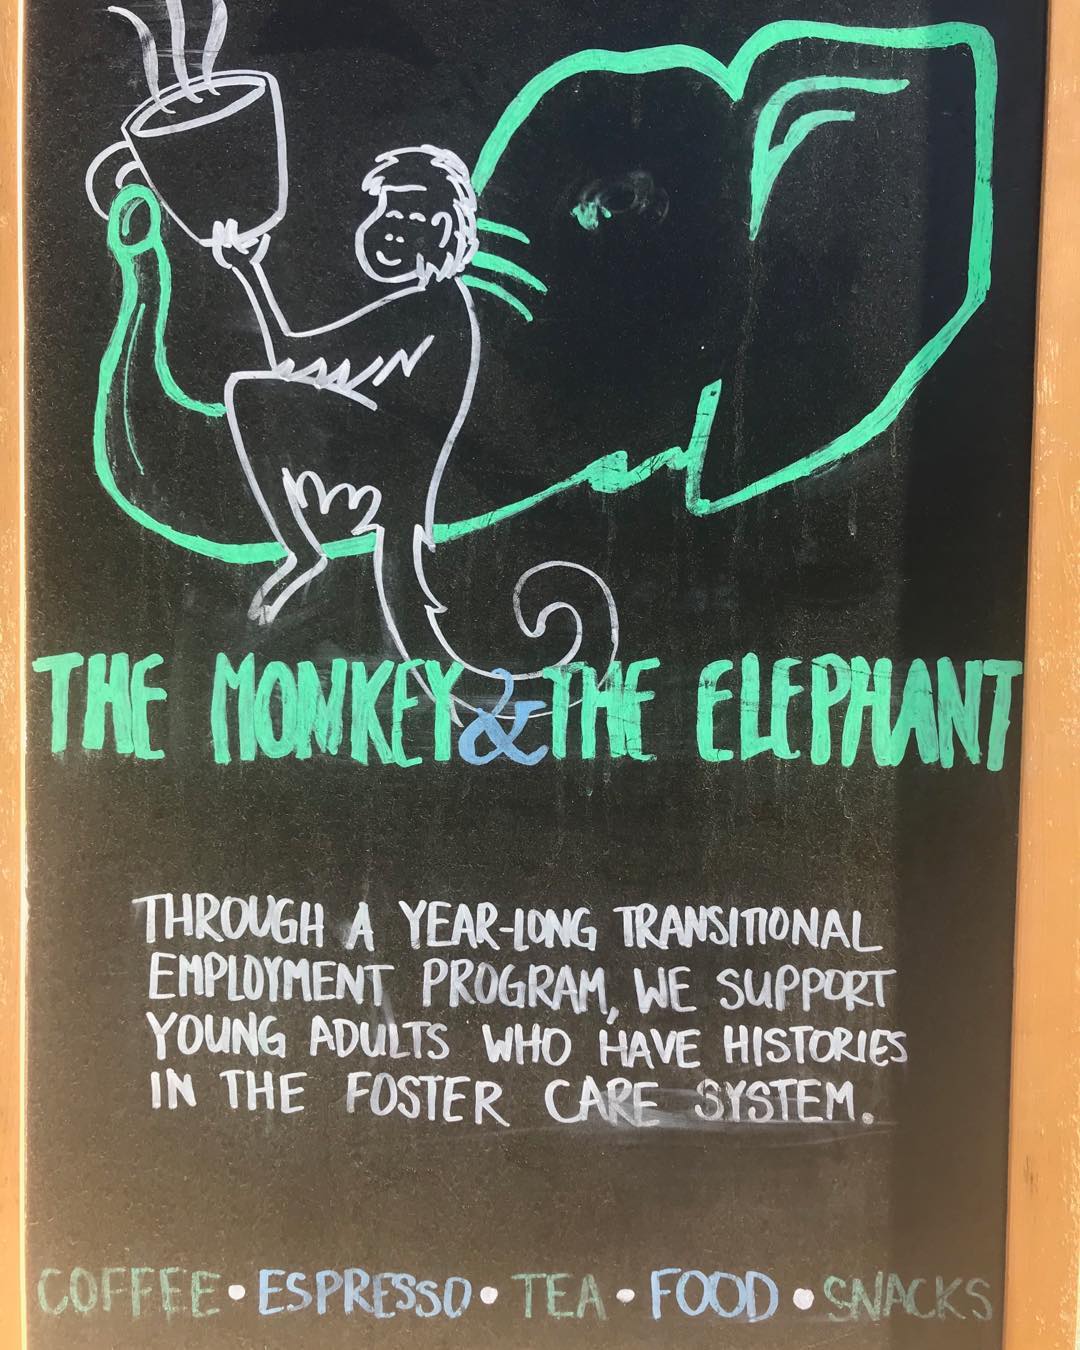 THE MONKEY & THE ELEPHANT
THROUGH A YEAR-LONG TRANSITIONAL
EMPLOYMENT PROGRAM, WE SUPPORT
YOUNG ADULTS WHO HAVE HISTORIES
IN THE FOSTER CARE SYSTEM.
COFFEE • ESPRESSO • TEA • FOOD • SNACKS